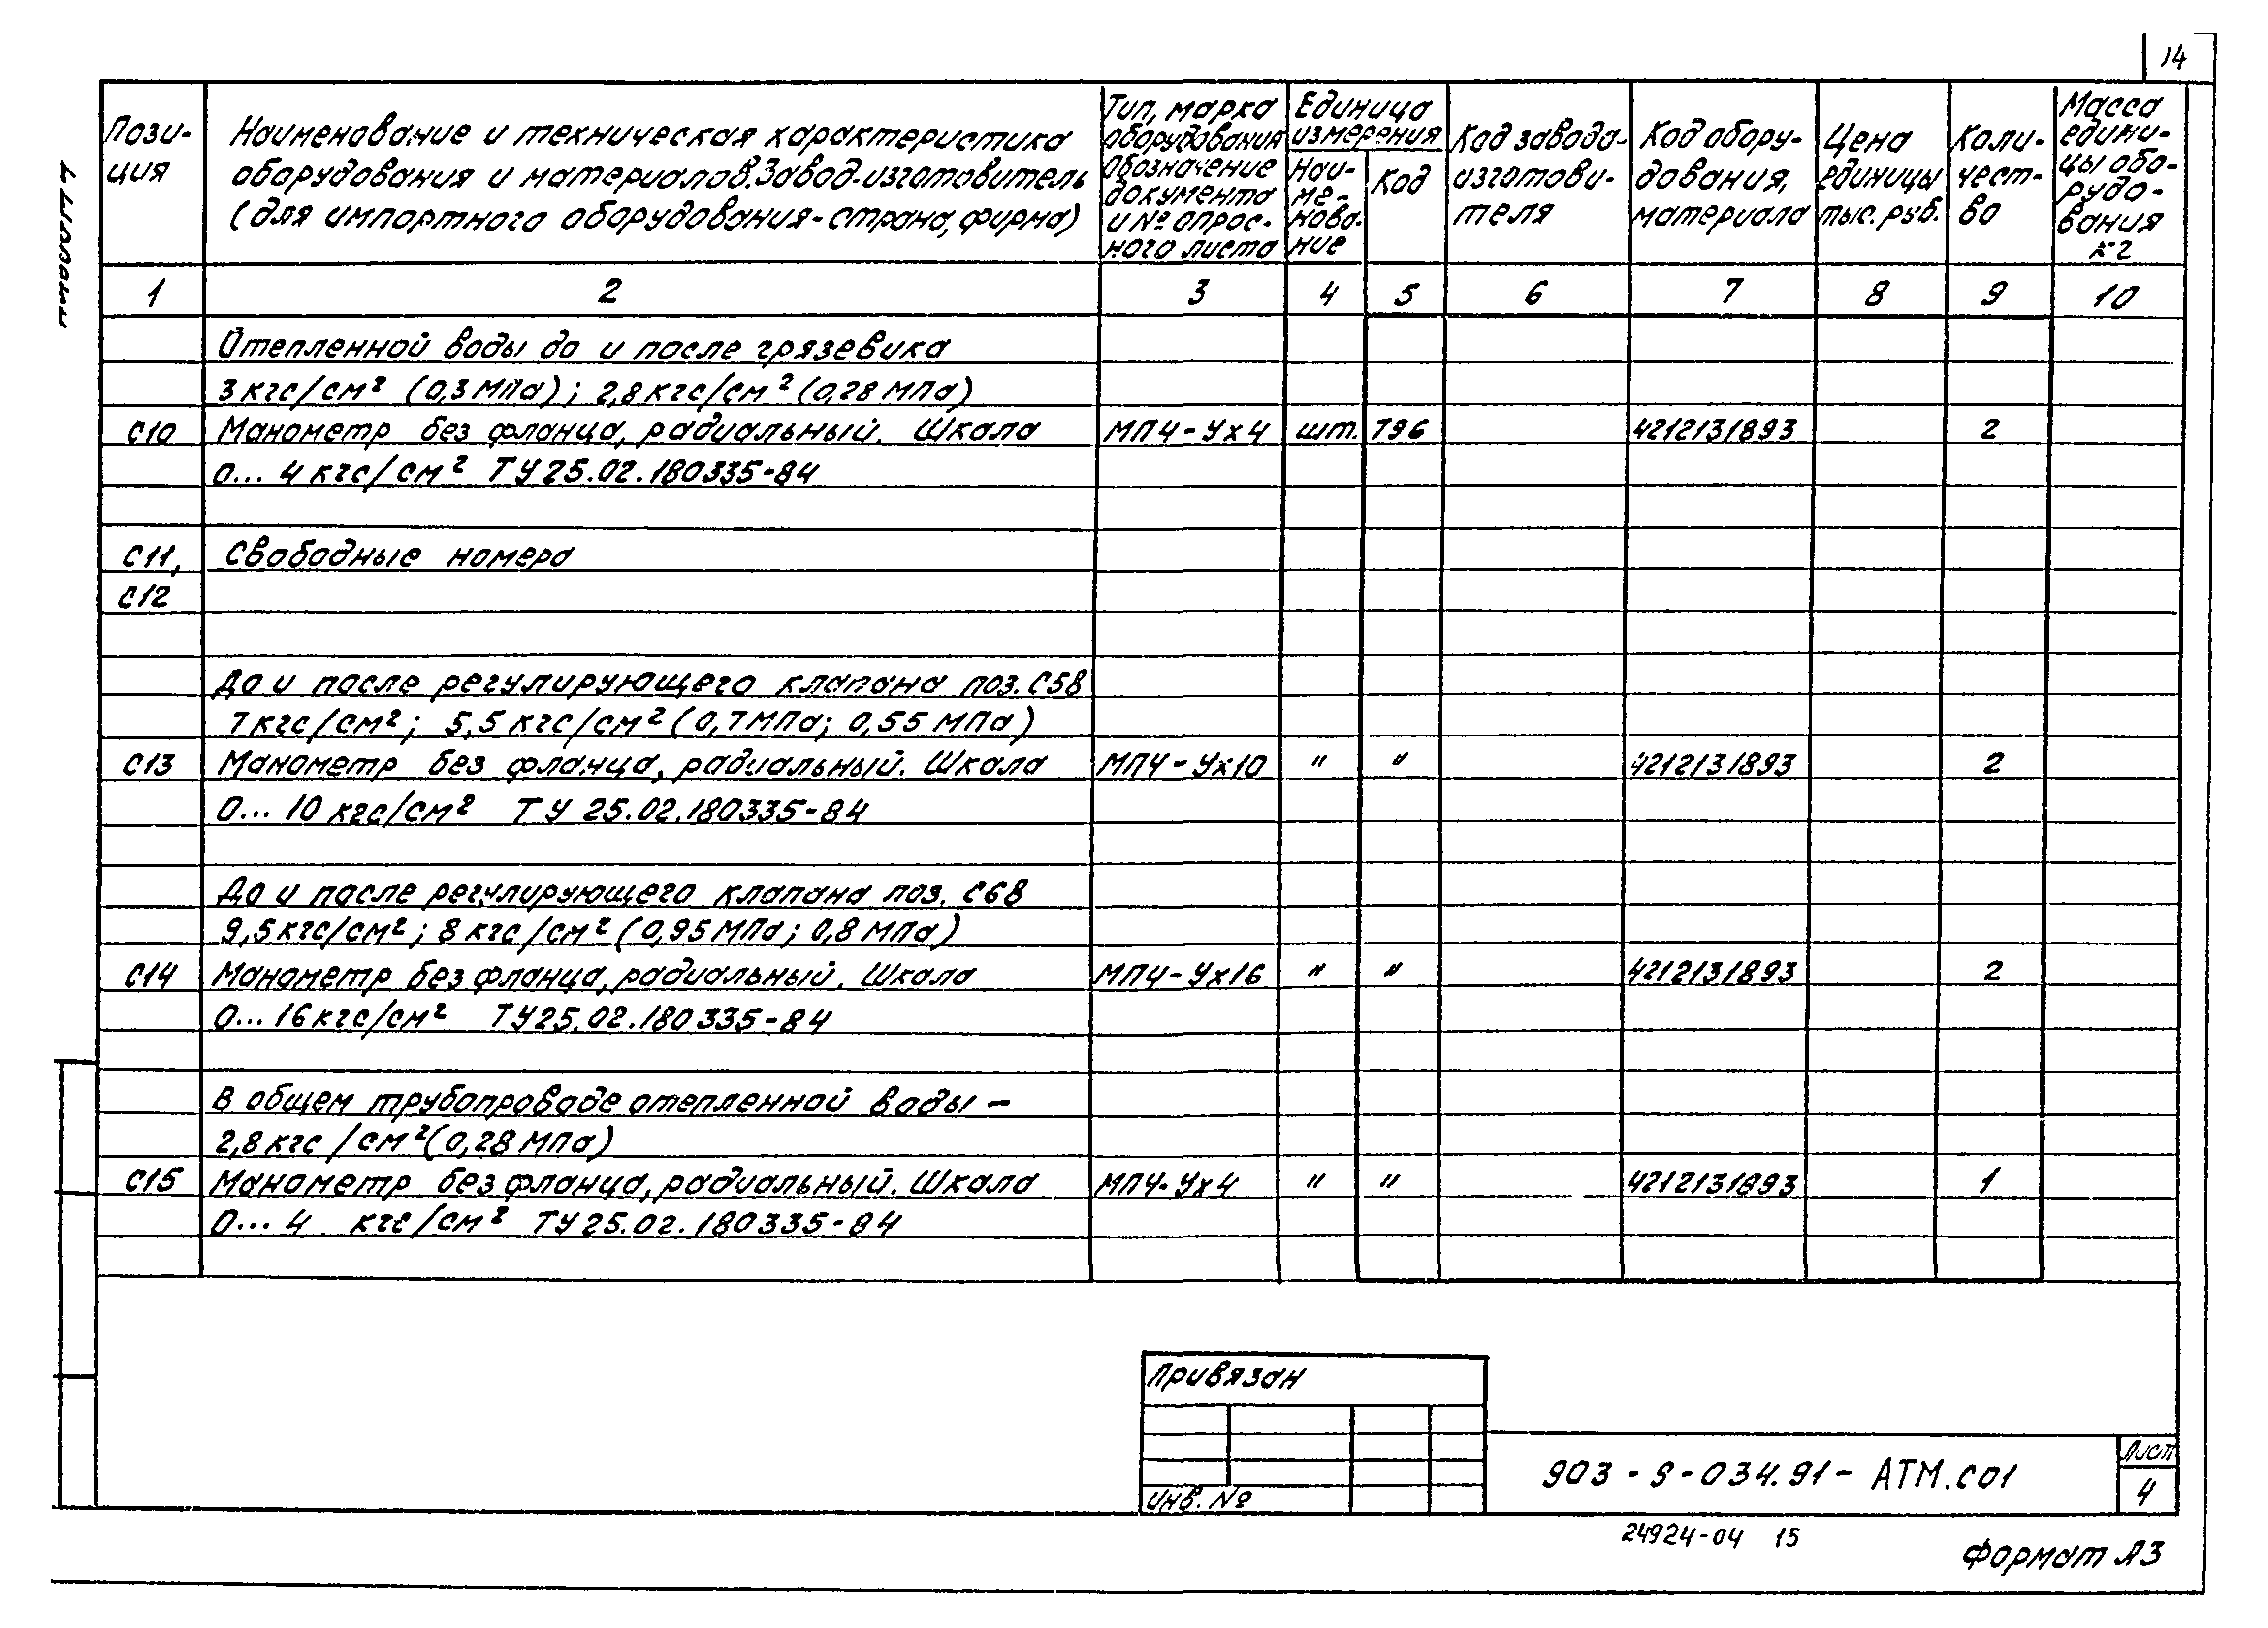 14
Пози-
ция
Наименование и техническая характеристика
оборудования и материалов. Завод-изготовитель
(для импортного оборудования - страна, фирма)
Тип, марка
оборудования
обозначение
документа
и № опрос-
ного листа
Единица
измерения
Наи-
ме-
нова-
ние
Код
Код завода-
изготови-
теля
Код обору-
дования,
материала
Цена
единицы
тыс. руб.
Коли-
чест-
во
Масса
едини-
цы обо-
рудо-
вания
кг
1 2 3 4 5 6 7 8 9 10
Отепленной воды до и после грязевика
3 кгс/см² (0,3 МПа); 2,8 кгс/см² (0,28 МПа)
С10 Манометр без фланца, радиальный. Шкала МПЧ-Ух4 шт. 796 4212131893 2
0... 4 кгс/см² ТУ 25.02.180335-84
С11, Свободные номера
С12
До и после регулирующего клапана поз. С5в
7 кгс/см²; 5,5 кгс/см² (0,7 МПа; 0,55 МПа)
С13 Манометр без фланца, радиальный. Шкала МПЧ-Ух10 " " 4212131893 2
0... 10 кгс/см² ТУ 25.02.180335-84
До и после регулирующего клапана поз. С6в
9,5 кгс/см²; 8 кгс/см² (0,95 МПа; 0,8 МПа)
С14 Манометр без фланца, радиальный. Шкала МПЧ-Ух16 " " 4212131893 2
0... 16 кгс/см² ТУ 25.02.180335-84
В общем трубопроводе отепленной воды -
2,8 кгс/см² (0,28 МПа)
С15 Манометр без фланца, радиальный. Шкала МПЧ-Ух4 " " 4212131893 1
0... 4 кгс/см² ТУ 25.02.180335-84
Привязан
Инв. №
903-9-034.91-АТМ.С01
Лист
4
24924-04 15
Формат А3